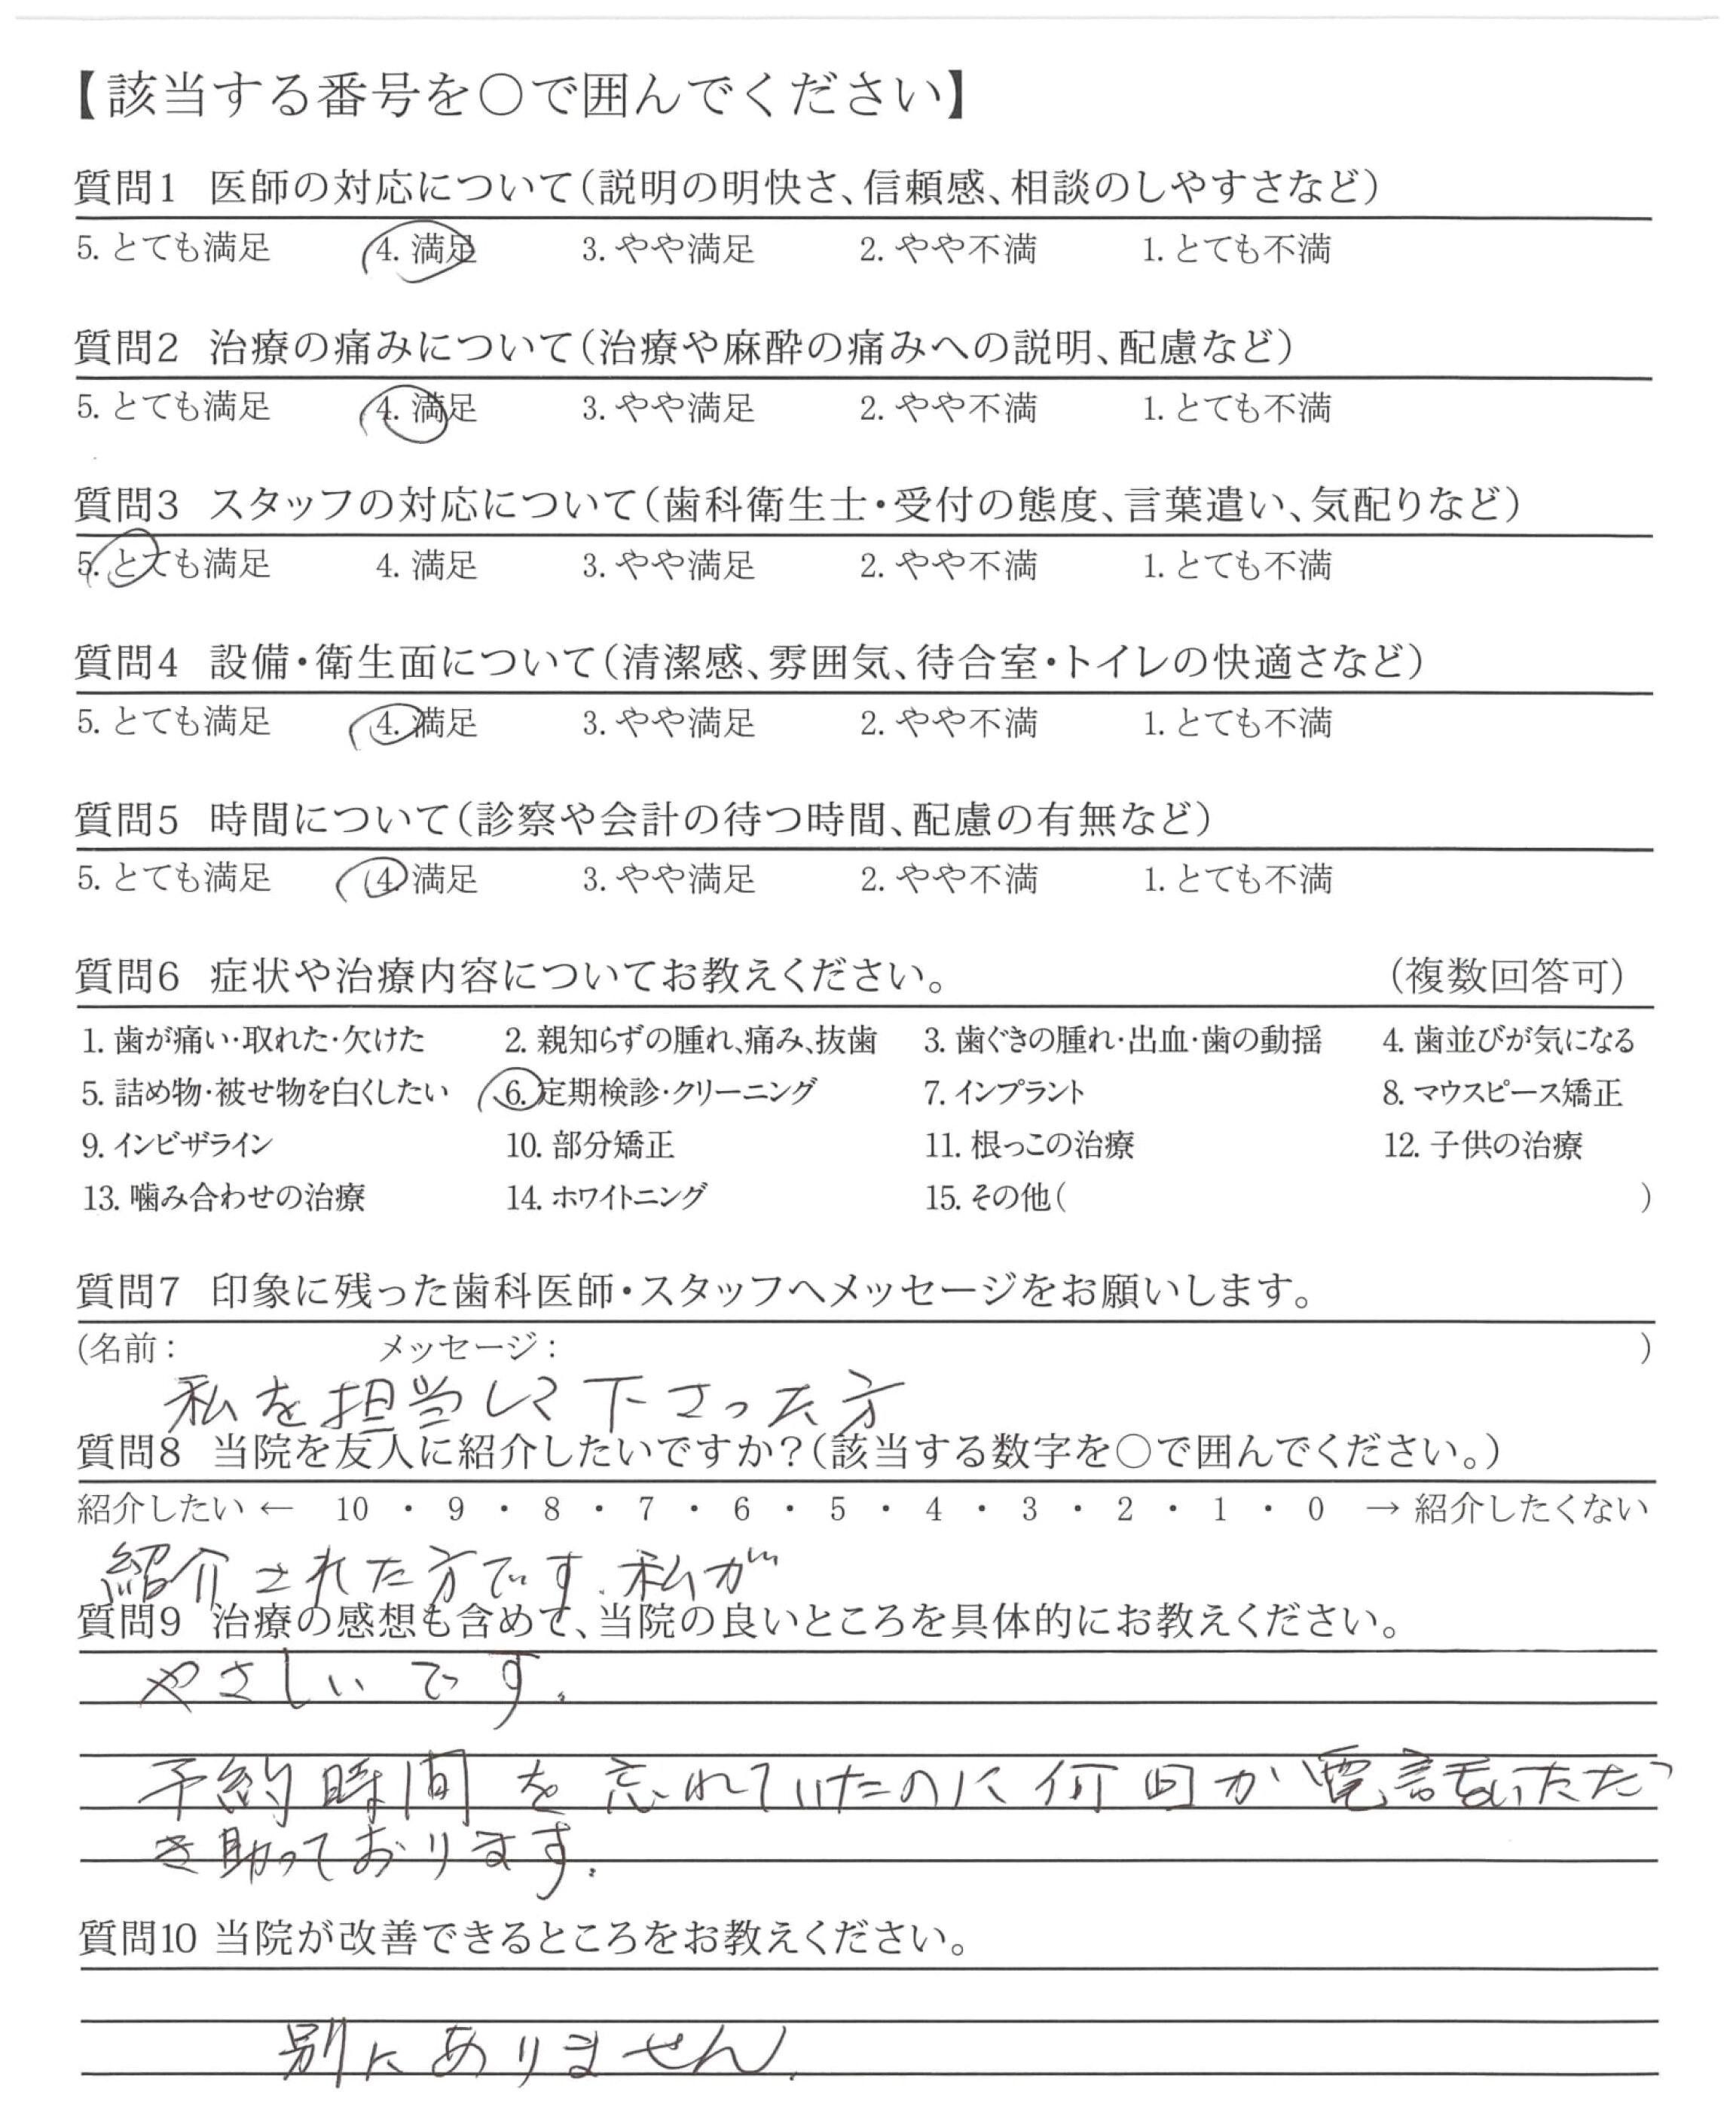 【該当する番号を○で囲んでください】
質問1 医師の対応について(説明の明快さ、信頼感、相談のしやすさなど)
5. とても満足 4. 満足 3. やや満足 2. やや不満 1. とても不満
質問2 治療の痛みについて(治療や麻酔の痛みへの説明、配慮など)
5. とても満足 4. 満足 3. やや満足 2. やや不満 1. とても不満
質問3 スタッフの対応について(歯科衛生士・受付の態度、言葉遣い、気配りなど)
5. とても満足 4. 満足 3. やや満足 2. やや不満 1. とても不満
質問4 設備・衛生面について(清潔感、雰囲気、待合室・トイレの快適さなど)
5. とても満足 4. 満足 3. やや満足 2. やや不満 1. とても不満
質問5 時間について(診察や会計の待つ時間、配慮の有無など)
5. とても満足 4. 満足 3. やや満足 2. やや不満 1. とても不満
質問6 症状や治療内容についてお教えください。 (複数回答可)
1. 歯が痛い・取れた・欠けた 2. 親知らずの腫れ、痛み、抜歯 3. 歯ぐきの腫れ・出血・歯の動揺 4. 歯並びが気になる
5. 詰め物・被せ物を白くしたい 6. 定期検診・クリーニング 7. インプラント 8. マウスピース矯正
9. インビザライン 10. 部分矯正 11. 根っこの治療 12. 子供の治療
13. 噛み合わせの治療 14. ホワイトニング 15. その他( )
質問7 印象に残った歯科医師・スタッフへメッセージをお願いします。
(名前: メッセージ: )
私を担当して下さった方
質問8 当院を友人に紹介したいですか?(該当する数字を○で囲んでください。)
紹介したい ← 10 ・ 9 ・ 8 ・ 7 ・ 6 ・ 5 ・ 4 ・ 3 ・ 2 ・ 1 ・ 0 → 紹介したくない
紹介された方です.私が
質問9 治療の感想も含めて、当院の良いところを具体的にお教えください。
やさしいです.
予約時間を忘れていたのに何回か電話をいただ
き助っております.
質問10 当院が改善できるところをお教えください。
別にありません.